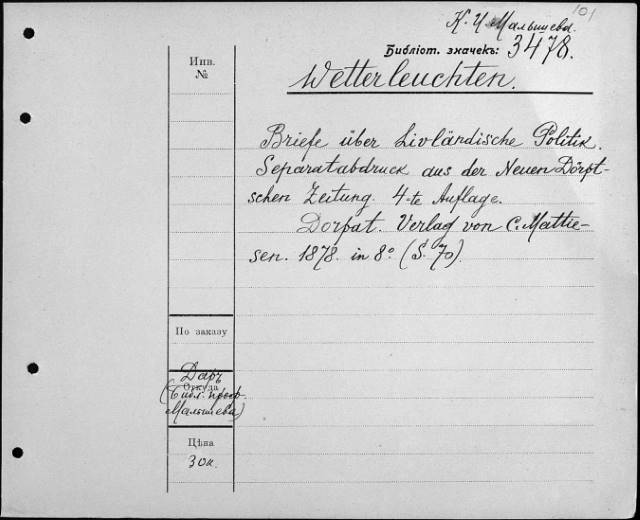 101
К. И. Малышева.
Библіот. значекъ: 3478.
Инв.
№
Wetterleuchten.
Briefe über Livländische Politik.
Separatabdruck aus der Neuen Dörpt-
schen Zeitung. 4-te Auflage.
Dorpat. Verlag von C. Mattie-
sen. 1878. in 8° (S. 70).
По заказу
Даръ
Откуда
(Библ. проф.
Малышева)
Цѣна
30 к.